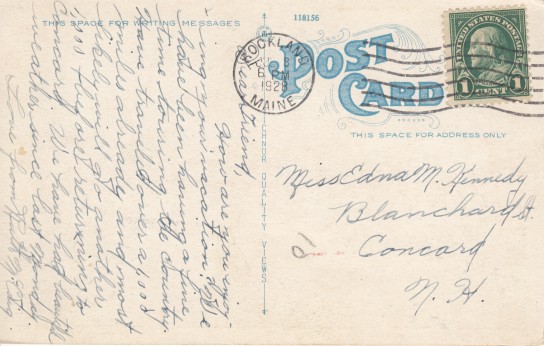 THIS SPACE FOR WRITING MESSAGES
118156
POST
CARD
THIS SPACE FOR ADDRESS ONLY
ROCKLAND
6 PM
1928
MAINE
UNITED STATES POSTAGE
1 CENT 1
QUALITY VIEWS
Dear Friend
How are you enjoy-
ing your vacation? We
have been having a fine
time touring the country
have traveled over a 1000
miles already and most
likely will go another
1,000 before returning to
We have had
weather since last Monday
Miss Edna M. Kennedy
Blanchard St.
Concord
N. H.